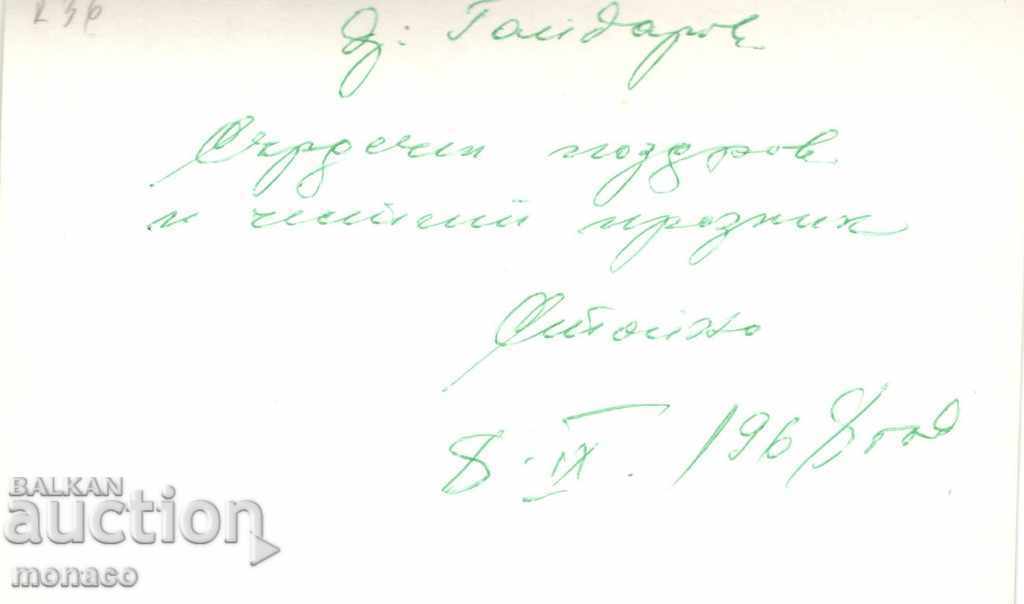 236
Д: Гайдаров
Сърдечен поздрав
и честит празник
Стойно
8. IX. 1968 год
BALKAN
auction
monaco